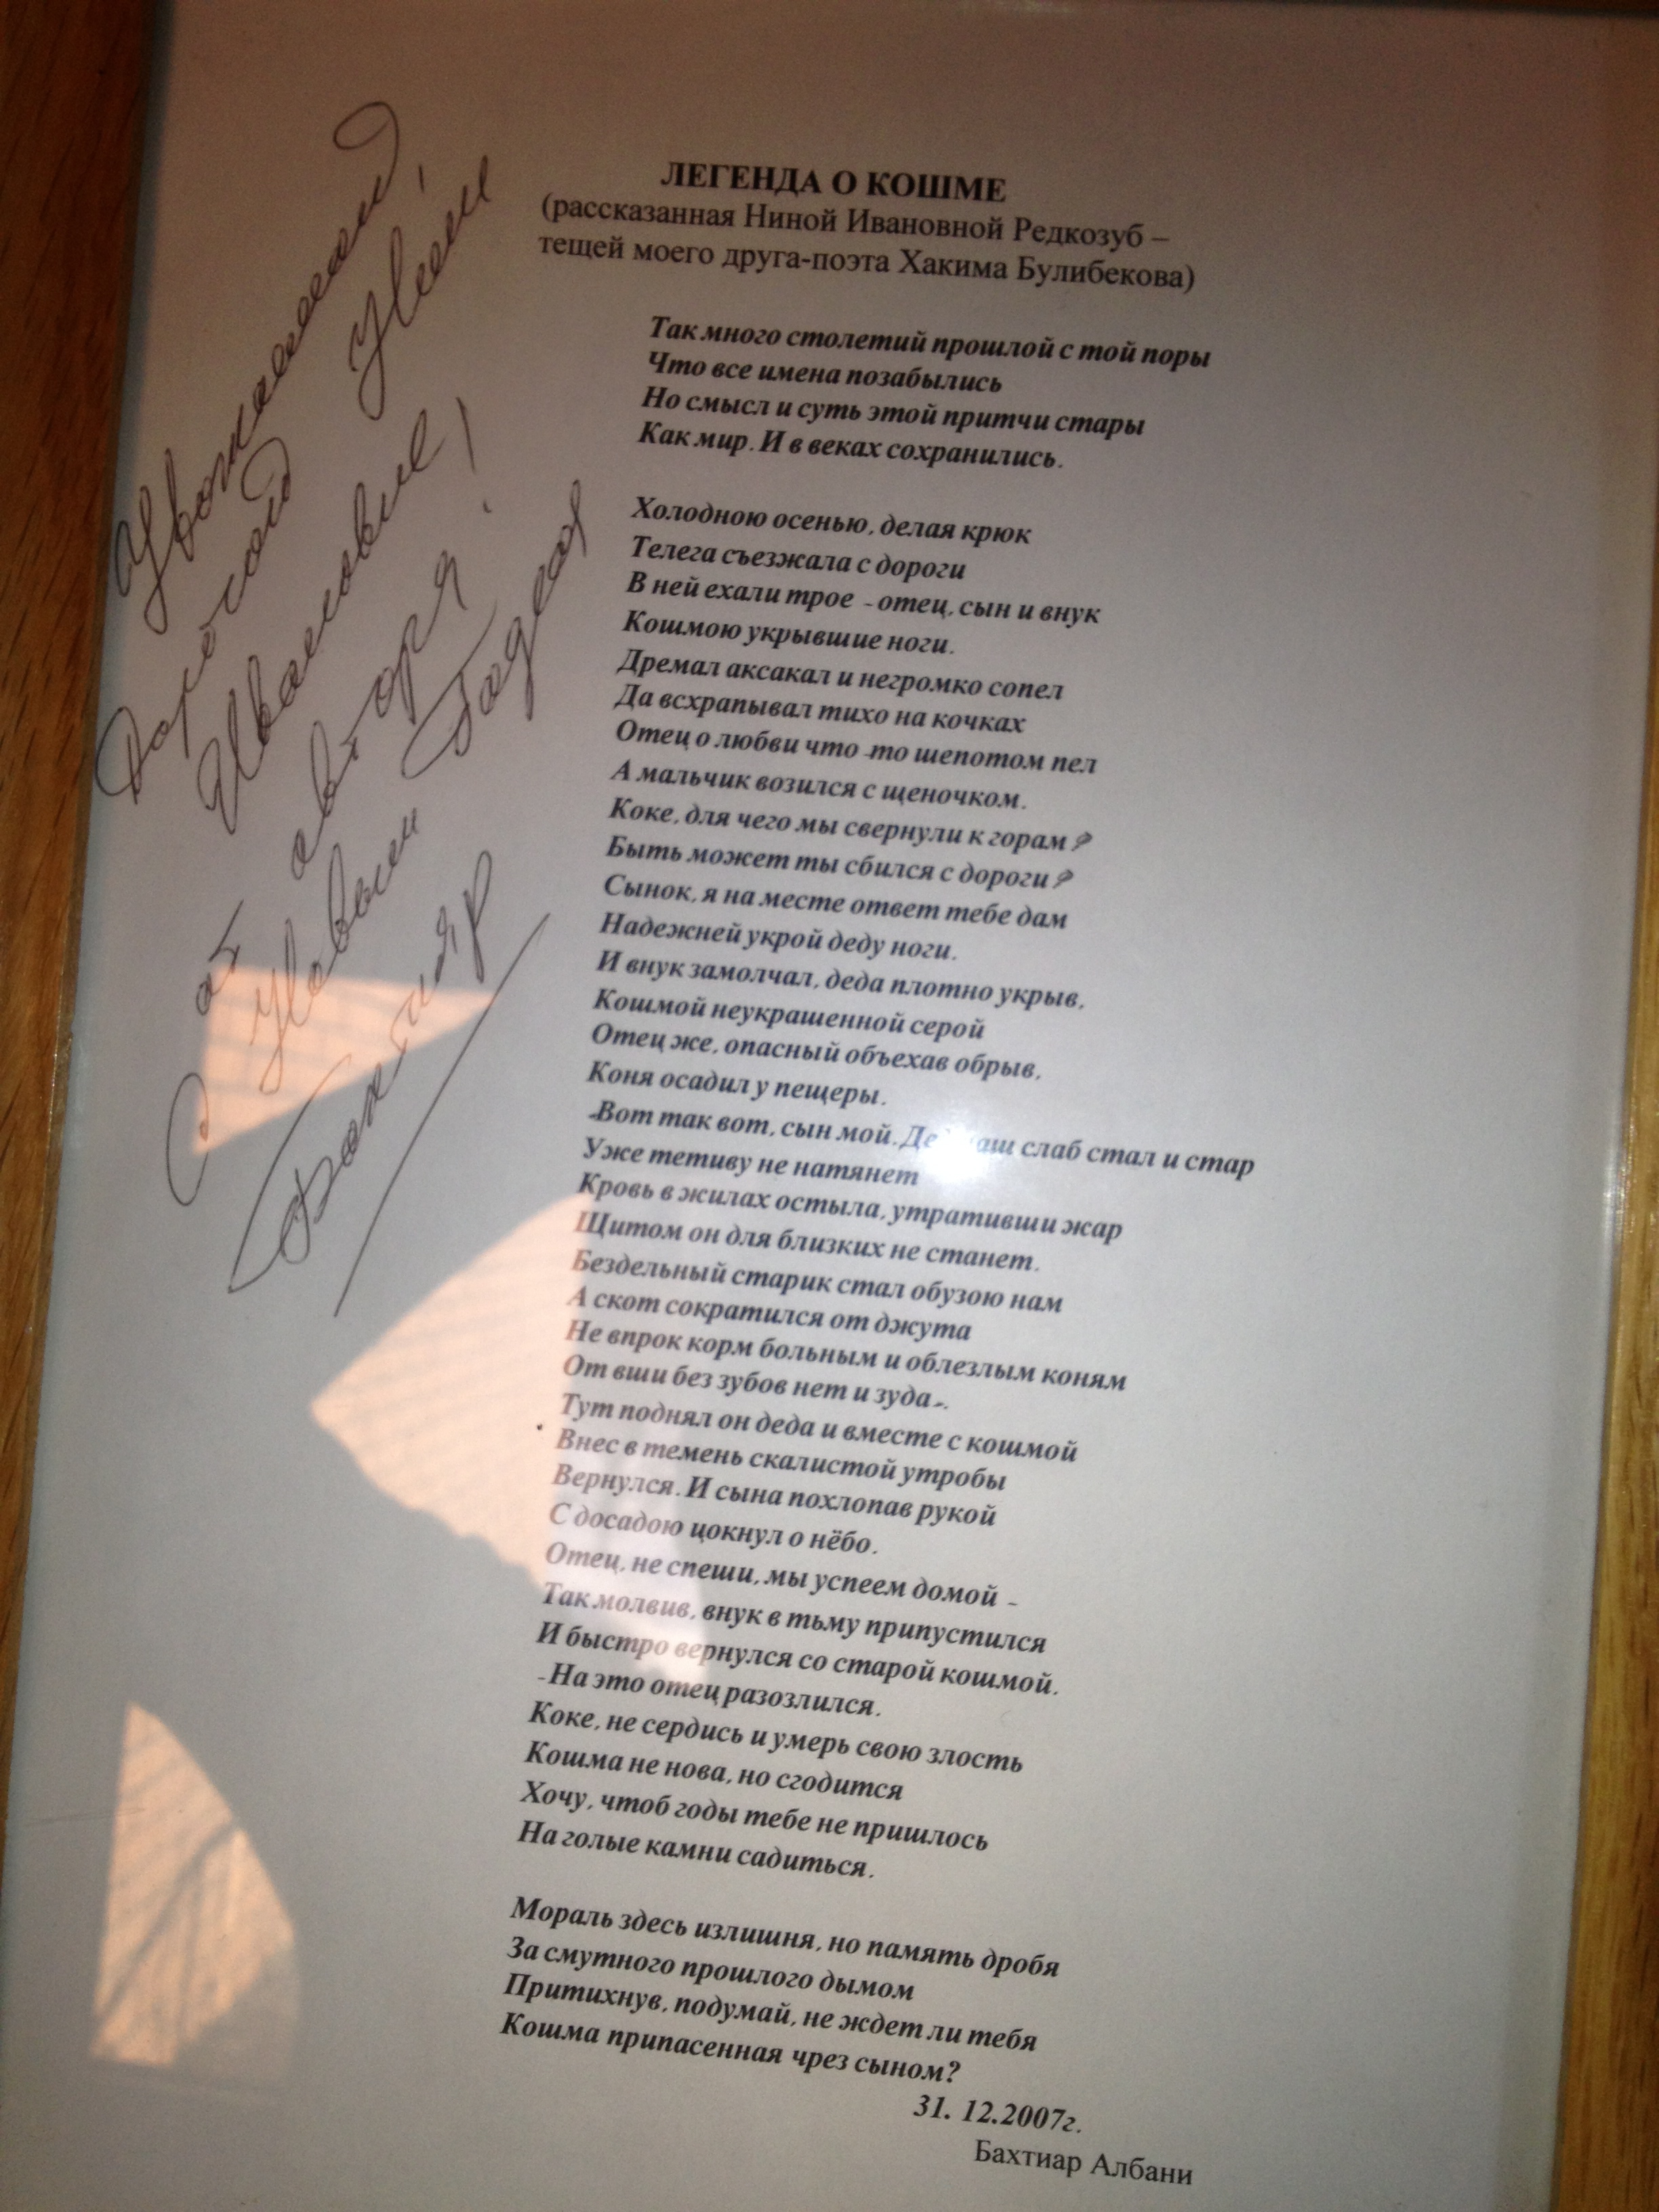 Уважаемой,
Дорогой Нине
Ивановне!
от автора!
С Новым Годом
Бахтияр
ЛЕГЕНДА О КОШМЕ
(рассказанная Ниной Ивановной Редкозуб –
тещей моего друга-поэта Хакима Булибекова)
Так много столетий прошлой с той поры
Что все имена позабылись
Но смысл и суть этой притчи стары
Как мир. И в веках сохранились.
Холодною осенью, делая крюк
Телега съезжала с дороги
В ней ехали трое - отец, сын и внук
Кошмою укрывшие ноги.
Дремал аксакал и негромко сопел
Да всхрапывал тихо на кочках
Отец о любви что -то шепотом пел
А мальчик возился с щеночком.
Коке, для чего мы свернули к горам?
Быть может ты сбился с дороги?
Сынок, я на месте ответ тебе дам
Надежней укрой деду ноги.
И внук замолчал, деда плотно укрыв,
Кошмой неукрашенной серой
Отец же, опасный объехав обрыв,
Коня осадил у пещеры.
-Вот так вот, сын мой. слаб стал и стар
Уже тетиву не натянет
Кровь в жилах остыла, утративши жар
Щитом он для близких не станет.
Бездельный старик стал обузою нам
А скот сократился от джута
Не впрок корм больным и облезлым коням
От вши без зубов нет и зуда-.
Тут поднял он деда и вместе с кошмой
Внес в темень скалистой утробы
Вернулся. И сына похлопав рукой
С досадою цокнул о нёбо.
Отец, не спеши, мы успеем домой -
Так молвив, внук в тьму припустился
И быстро вернулся со старой кошмой.
-На это отец разозлился.
Коке, не сердись и умерь свою злость
Кошма не нова, но сгодится
Хочу, чтоб годы тебе не пришлось
На голые камни садиться.
Мораль здесь излишня, но память дробя
За смутного прошлого дымом
Притихнув, подумай, не ждет ли тебя
Кошма припасенная чрез сыном?
31. 12.2007г.
Бахтиар Албани